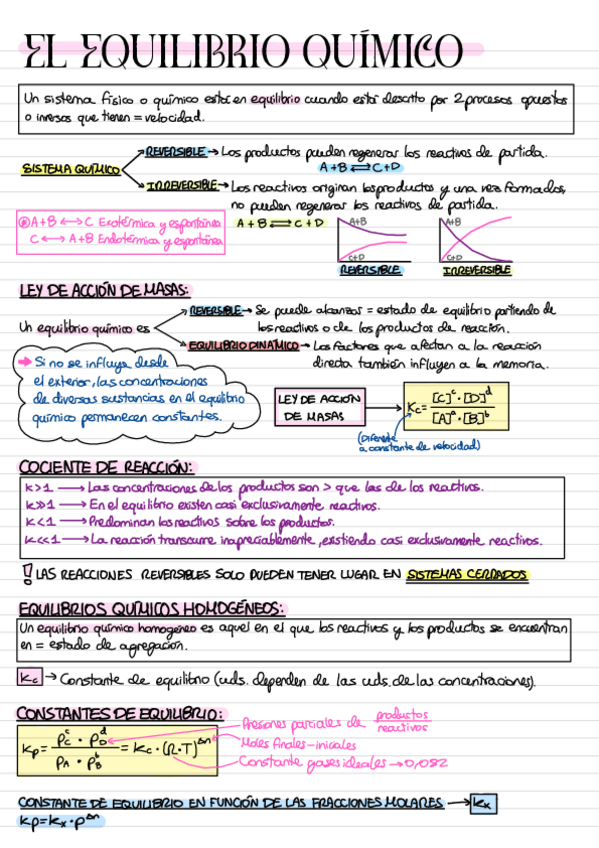 EL EQUILIBRIO QUÍMICO
Un sistema físico o químico está en equilibrio cuando está descrito por 2 procesos opuestos
o inversos que tienen = velocidad.
SISTEMA QUÍMICO
REVERSIBLE → Los productos pueden regenerar los reactivos de partida.
A+B ⇄ C+D
IRREVERSIBLE → Los reactivos originan los productos y una vez formados,
no pueden regenerar los reactivos de partida.
A+B ⇄ C+D
A+B ⟷ C Exotérmica y espontánea
C ⟷ A+B Endotérmica y espontánea
A+B
C+D
REVERSIBLE
A+B
C+D
IRREVERSIBLE
LEY DE ACCIÓN DE MASAS:
Un equilibrio químico es
REVERSIBLE → Se puede alcanzar = estado de equilibrio partiendo de
los reactivos o de los productos de reacción.
EQUILIBRIO DINÁMICO → Los factores que afectan a la reacción
directa también influyen a la memoria.
→ Si no se influye desde
el exterior, las concentraciones
de diversas sustancias en el equilibrio
químico permanecen constantes.
LEY DE ACCIÓN
DE MASAS
Kc = [C]^c · [D]^d / [A]^a · [B]^b
(Diferente
a constante de velocidad)
COCIENTE DE REACCIÓN:
K>1 → Las concentraciones de los productos son > que las de los reactivos.
K≫1 → En el equilibrio existen casi exclusivamente reactivos.
K<1 → Predominan los reactivos sobre los productos.
K≪1 → La reacción transcurre inapreciablemente, existiendo casi exclusivamente reactivos.
! LAS REACCIONES REVERSIBLES SOLO PUEDEN TENER LUGAR EN SISTEMAS CERRADOS
EQUILIBRIOS QUÍMICOS HOMOGÉNEOS:
Un equilibrio químico homogéneo es aquel en el que los reactivos y los productos se encuentran
en = estado de agregación.
Kc → Constante de equilibrio (uds. dependen de las uds. de las concentraciones).
CONSTANTES DE EQUILIBRIO:
Kp = Pc^c · PD^d / PA · PB^b = Kc · (R·T)^Δn
Presiones parciales de productos / reactivos
Moles finales-iniciales
Constante gases ideales → 0,082
CONSTANTE DE EQUILIBRIO EN FUNCIÓN DE LAS FRACCIONES MOLARES → Kx
Kp=Kx·P^Δn